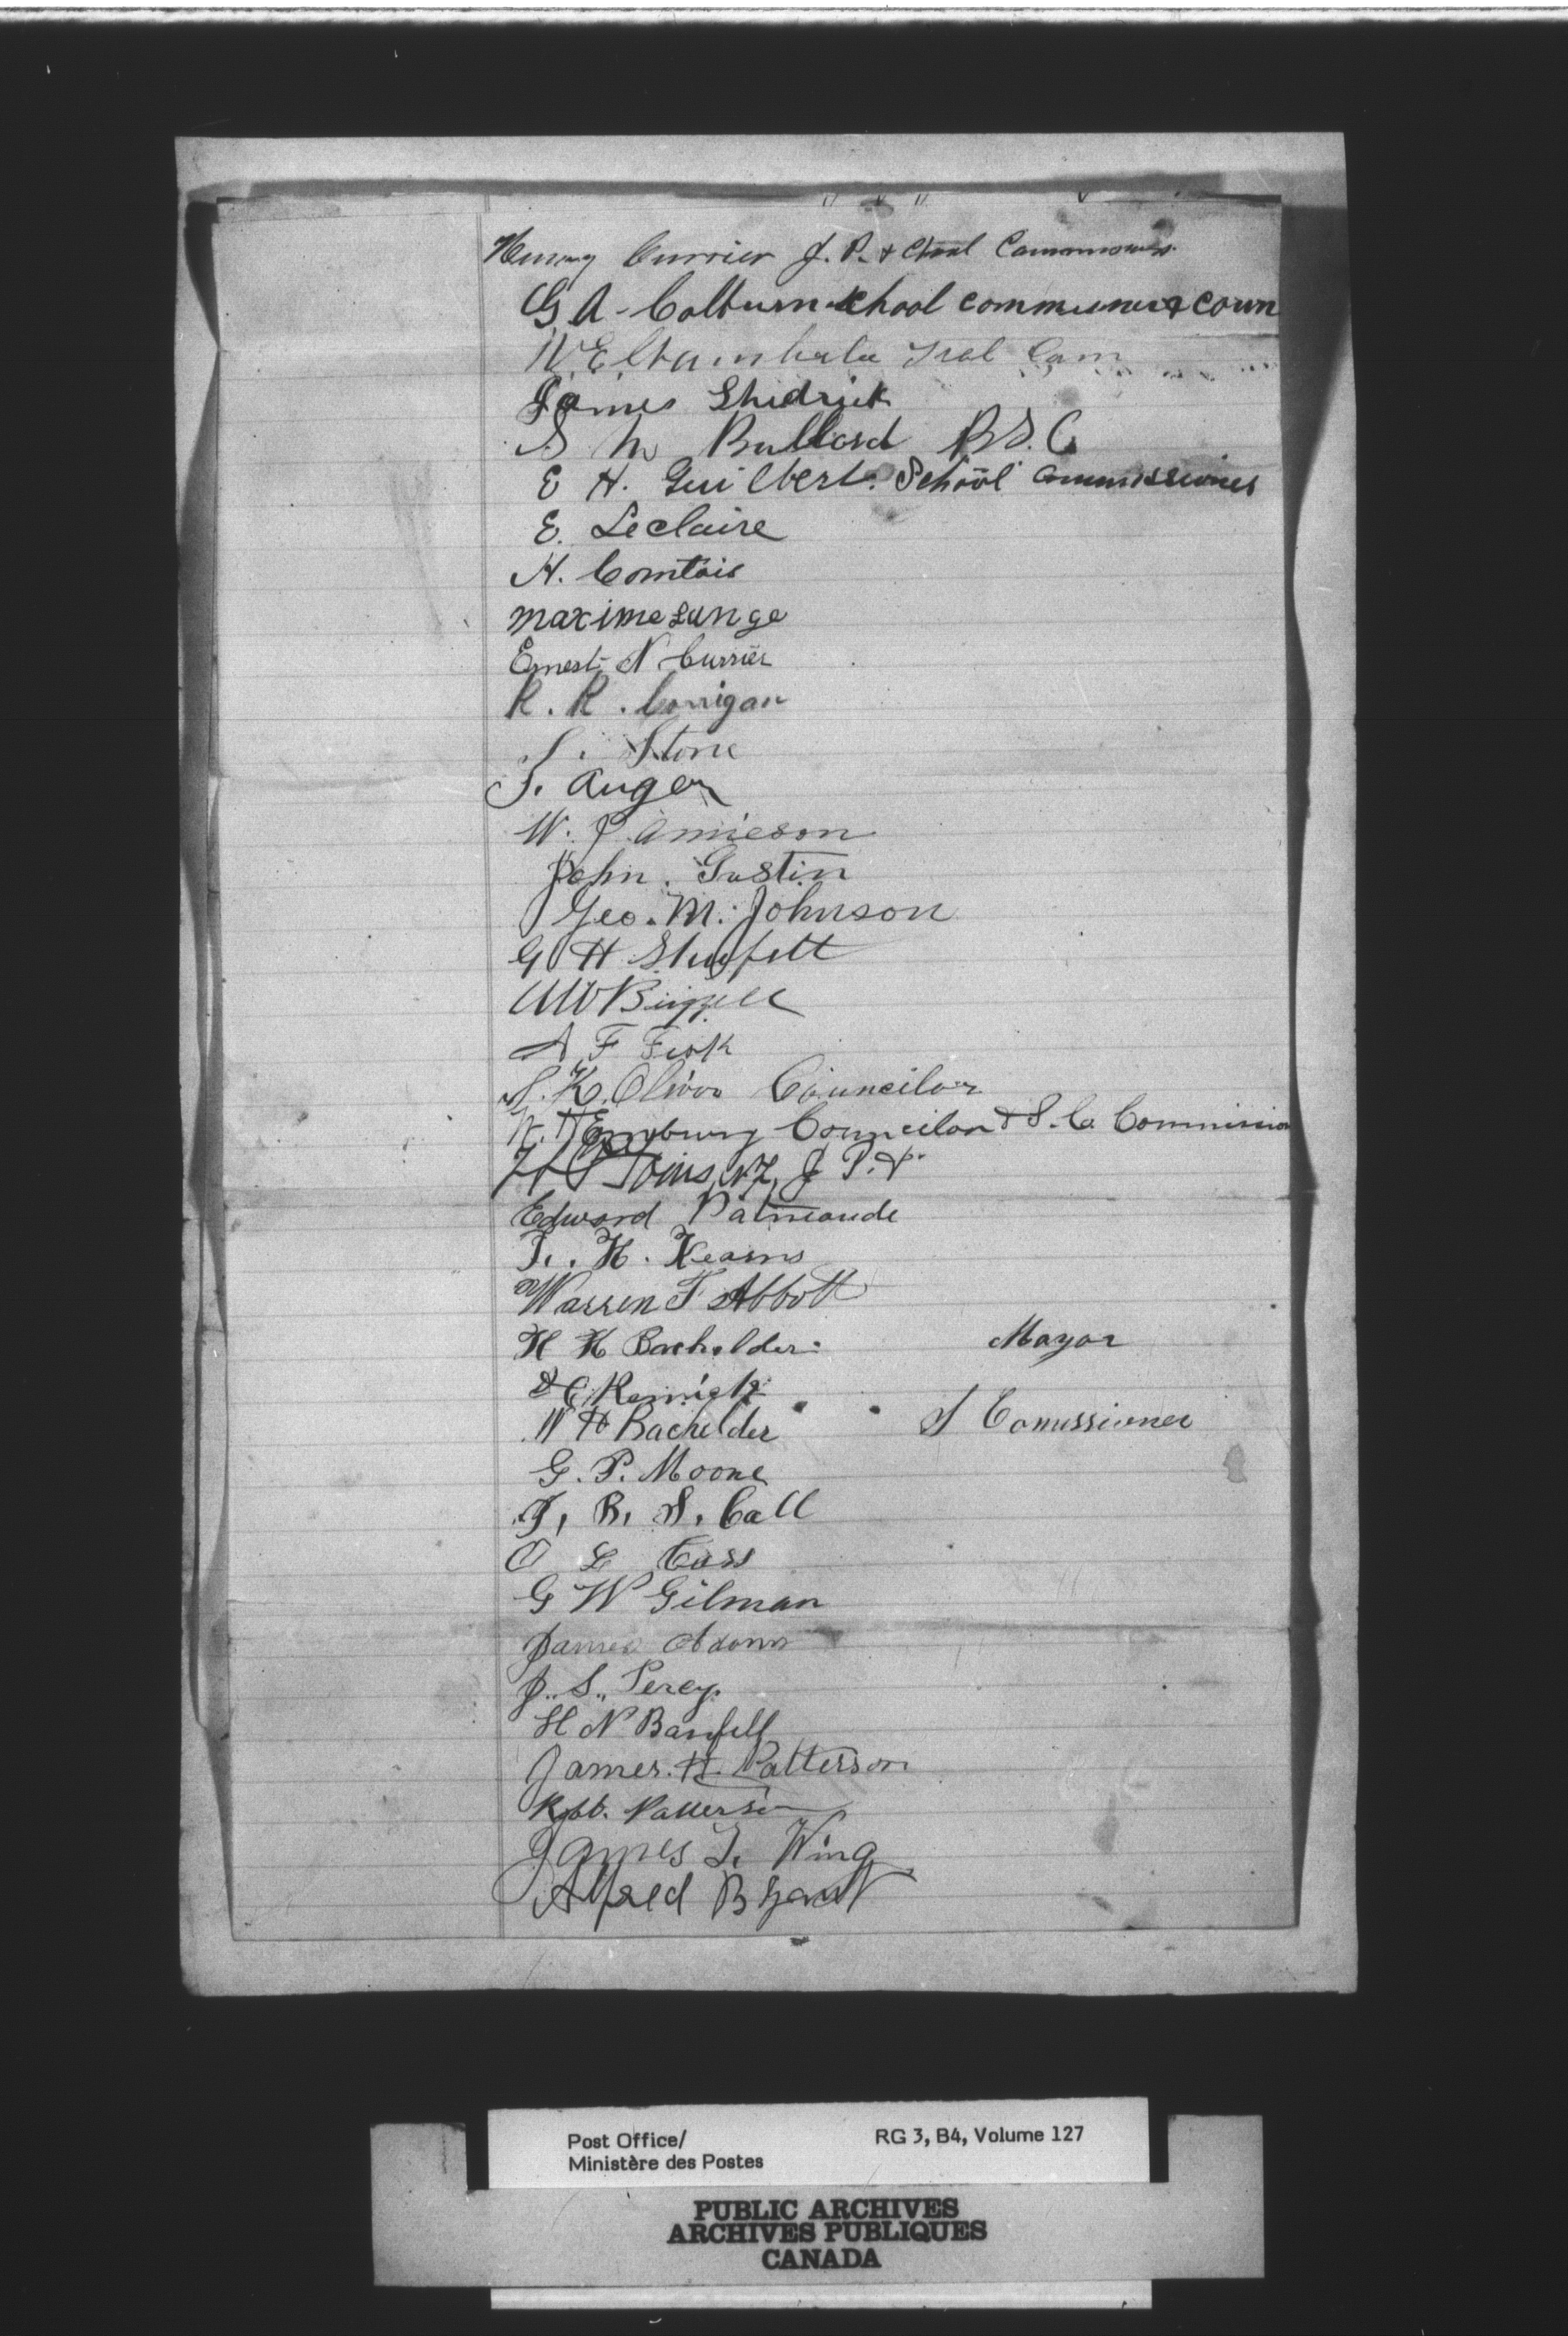 Henry Currier J. P. & Chool Commissoners
G A - Colburn School commissoner & Coun
W. E.
James Shedrick
S N Bullard B S. C
E H. Guilbert. School Commissioner
E. Leclaire
H. Comtois
maxime Lange
Ernest N Currier
R. R. Corrigan
S. Stone
J. Auger
W. Jamieson
John. Gustin
Geo. M. Johnson
G H Shufelt
A F Fisk
S. K. Oliver Councilor
W. H. Councilor & S. Co. Commission
J P. &
Edward
T. H. Kearns
Warren F Abbott
H H Bachelder Mayor
W H Bachelder S Comissioner
G. P. Moore
J, B, S, Call
O L Cass
G W Gilman
James Adams
J.. S.. Percy.
H N Banfill
James. H. Patterson
Robt. Patterson
James T. Wing
Alfred Bryant
Post Office/ RG 3, B4, Volume 127
Ministère des Postes
PUBLIC ARCHIVES
ARCHIVES PUBLIQUES
CANADA